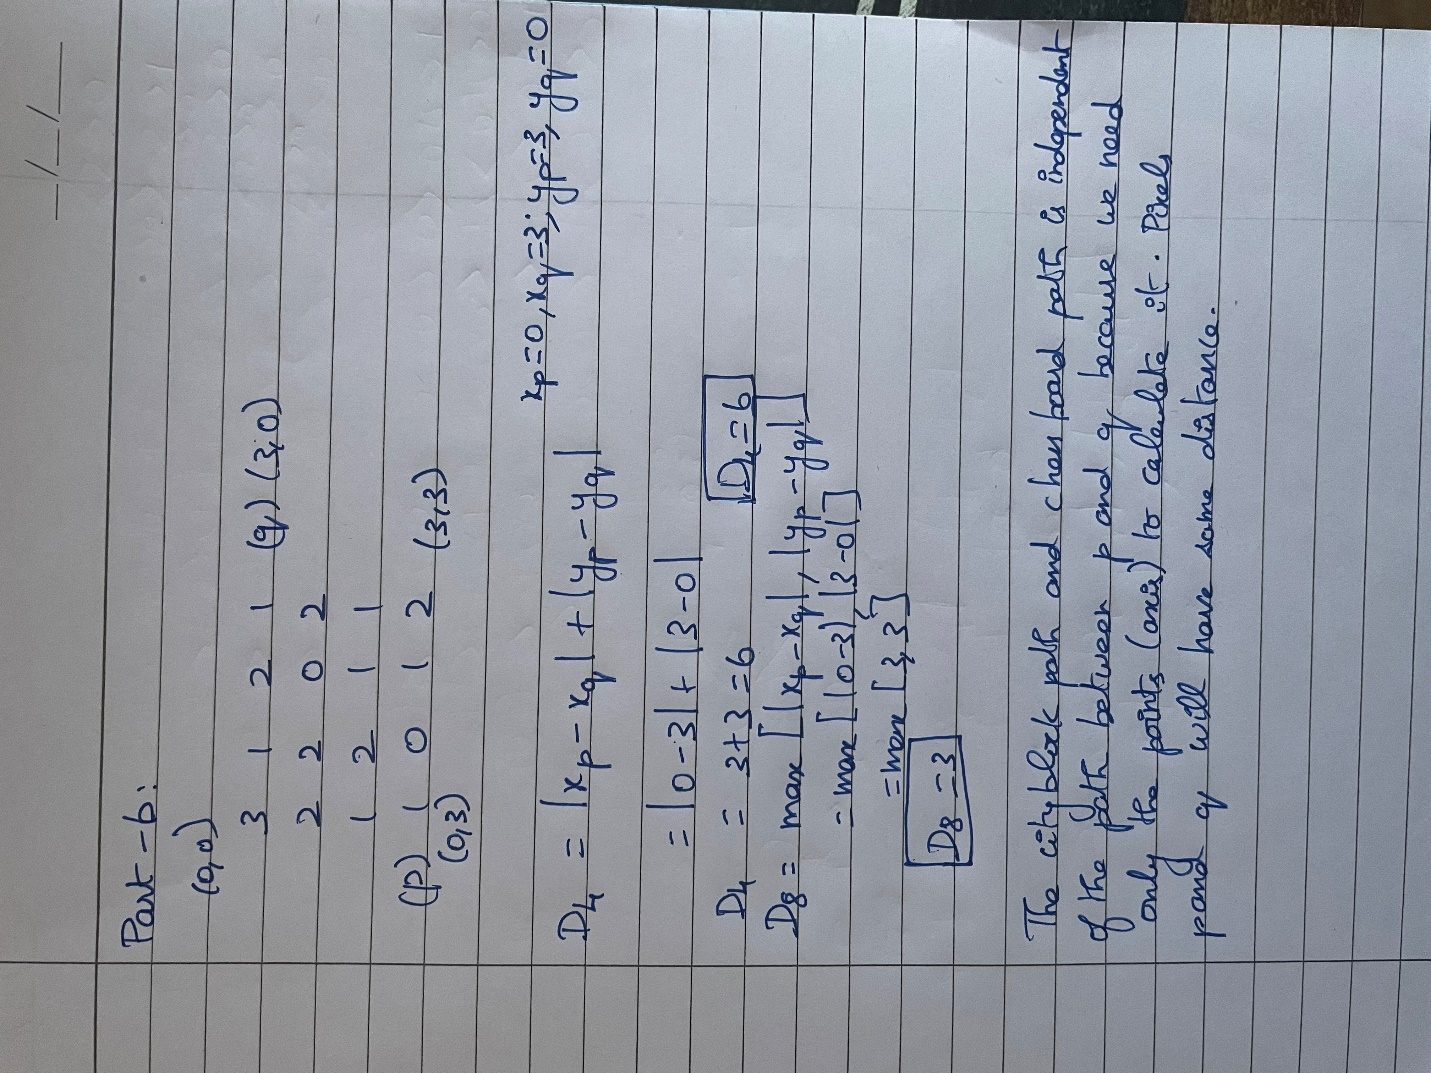 _/_/_
Part-b:
(0,0)
3 1 2 1 (q) (3,0)
2 2 0 2
1 2 1 1
(P) 1 0 1 2 (3,3)
(0,3)
xp=0, xq=3, yp=3, yq=0
D4 = |xp-xq| + |yp-yq|
= |0-3| + |3-0|
D4 = 3+3=6 D4=6
D8 = max [|xp-xq|, |yp-yq|]
= max [|0-3|, |3-0|]
= max [3,3]
D8=3
The city block path and chess board path is independent
of the path between p and q because we need
only the points (axis) to calculate it. Pixels
p and q will have same distance.